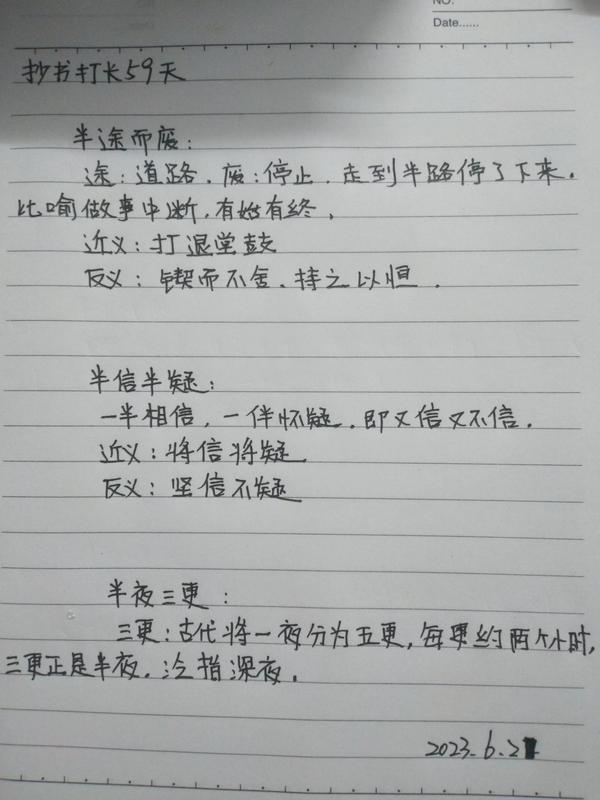 NO.
Date......
抄书打长59天
半途而废:
途:道路.废:停止.走到半路停了下来.
比喻做事中断,有始有终.
近义:打退堂鼓
反义:锲而不舍、持之以恒.
半信半疑:
一半相信,一伴怀疑.即又信又不信.
近义:将信将疑
反义:坚信不疑
半夜三更:
三更:古代将一夜分为五更,每更约两个小时,
三更正是半夜.泛指深夜.
2023.6.2